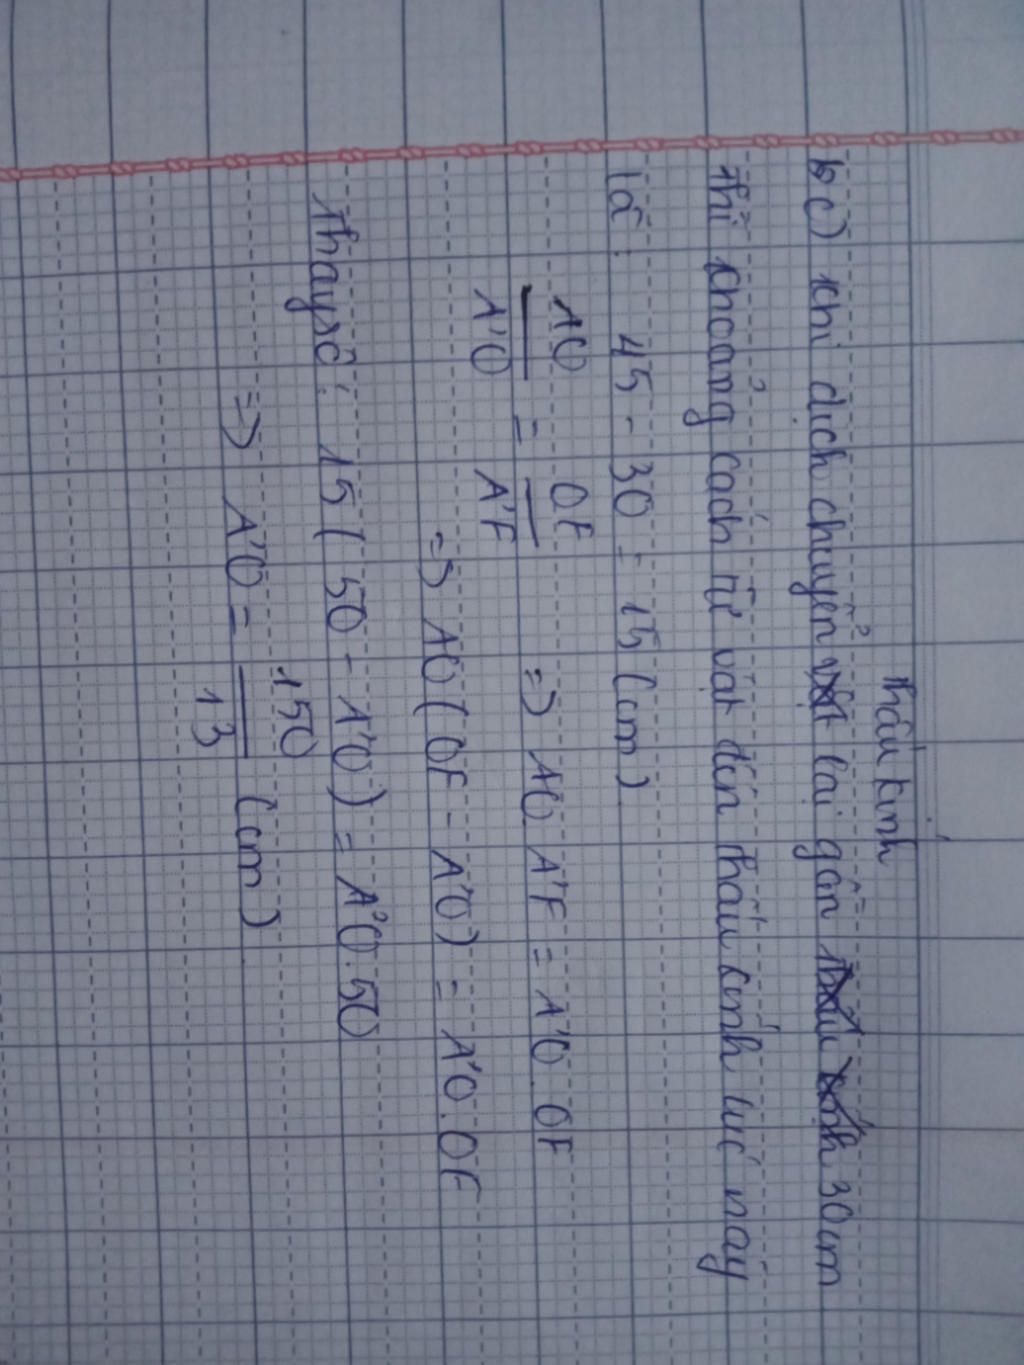 thấu kính
c) khi dịch chuyển lại gần 30cm
thì khoảng cách từ vật đến thấu kính lúc này
là : 45 - 30 = 15 (cm)
AO / A'O = OF / A'F => AO . A'F = A'O . OF
=> AO ( OF - A'O ) = A'O . OF
Thay số : 15 ( 50 - A'O ) = A'O . 50
=> A'O = 150 / 13 (cm)